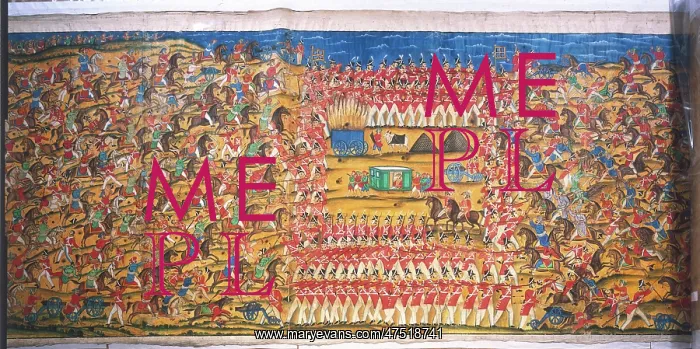 ME
PL
ME
PL
www.maryevans.com/47518741